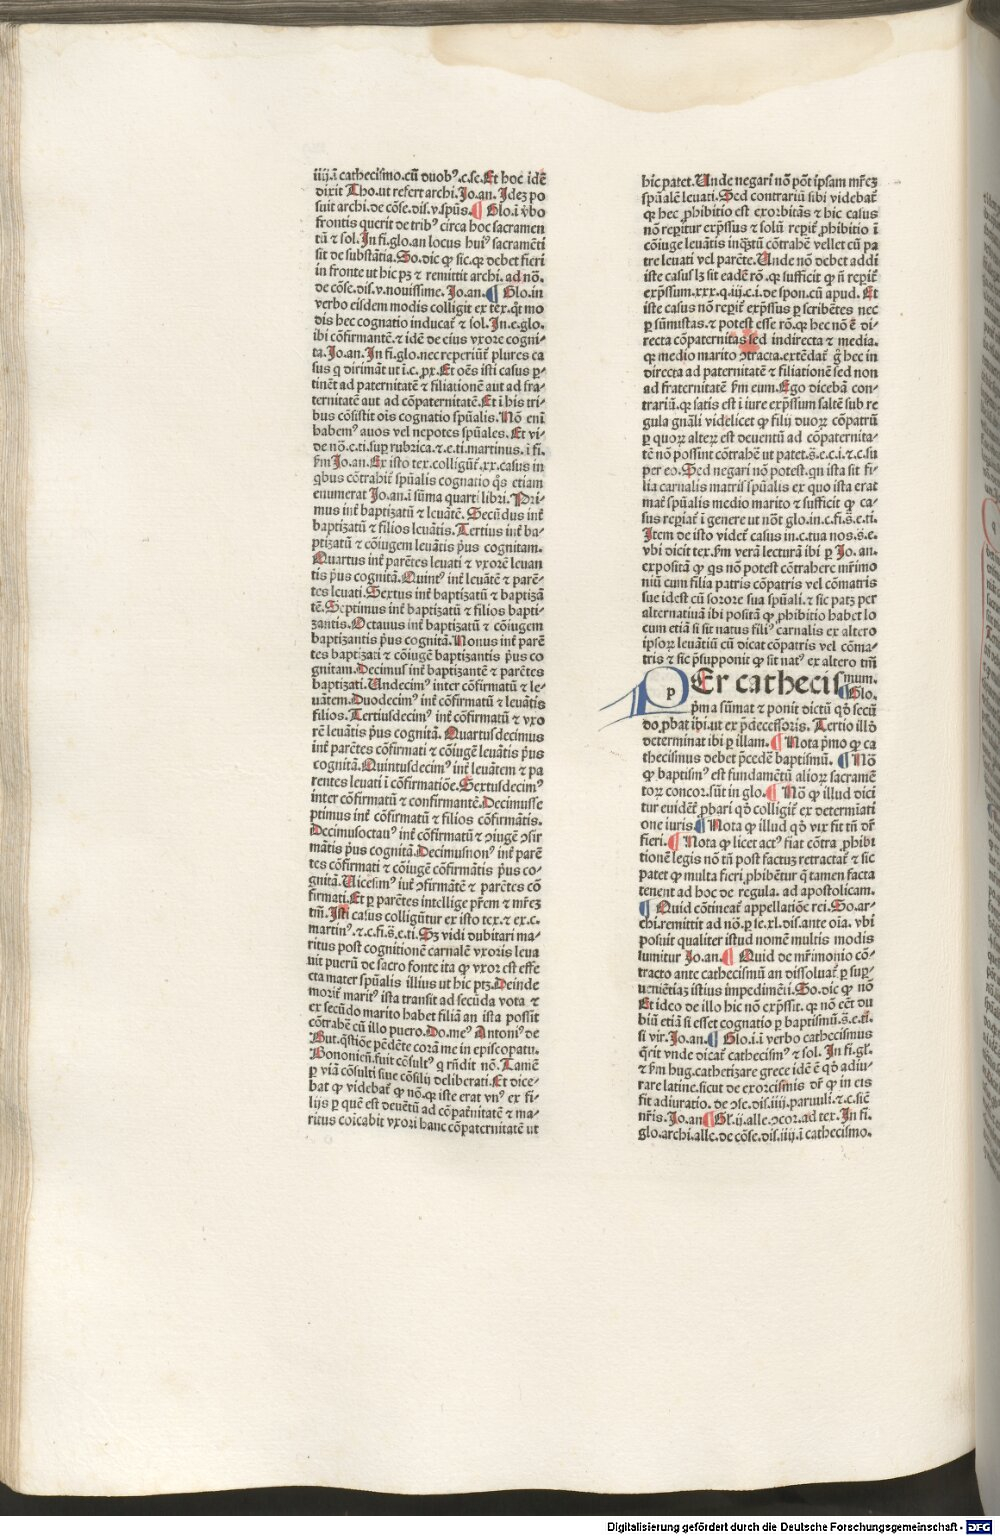 iiij.ī cathecismo.cū duobꝰ.c.se.Et hoc idē
dixit Tho.ut refert archi.Jo.an. Idez po
suit archi.de cōse.dis.v.spūs.¶ Glo.i v̄bo
frontis querit de tribꝰ circa hoc sacramen
tū ⁊ sol.In fi.glo.an locus huiꝰ sacramēti
sit de substātia.So.dic ꝙ sic.qꝛ debet fieri
in fronte ut hic pꝫ ⁊ remittit archi. ad nō.
de cōse.dis.v.nouissime. Jo.an.¶ Glo.in
verbo eisdem modis colligit ex tex.qͥt mo
dis hec cognatio inducat᷑ ⁊ sol.In.e.glo.
ibi cōfirmantē.⁊ idē de eius vxore cogni-
ta.Jo.an.In fi.glo.nec reperiūt᷑ plures ca
sus q̄ dirimāt ut i.c.ꝓx.Et oēs isti casus ꝑ-
tinēt ad paternitatē ⁊ filiationē aut ad fra-
ternitatē aut ad cōpaternitatē.Et i his tri
bus cōsistit ois cognatio spūalis.Nō enī
habemꝰ auos vel nepotes spūales. Et vi-
de nō.e.ti.suꝑ rubrica.⁊.e.ti.martinus. i fi.
ẜm Jo.an.Ex isto tex.colligūt᷑.xx.casus in
qͥbus cōtrahit᷑ spūalis cognatio qͦs etiam
enumerat Jo.an.ī sūma quarti libri. Pri-
mus int᷑ baptizatū ⁊ leuātē.Secūdus int᷑
baptizatū ⁊ filios leuātis.Tertius int᷑ ba-
ptizatū ⁊ cōiugem leuātis pͥus cognitam.
Quartus int᷑ parētes leuati ⁊ vxorē leuan
tis pͥus cognitā.Quintꝰ int᷑ leuātē ⁊ parē-
tes leuati.Sextus int᷑ baptizatū ⁊ baptizā
tē.Septimus int᷑ baptizatū ⁊ filios bapti-
zantis.Octauus int᷑ baptizatū ⁊ cōiugem
baptizantis pͥus cognitā.Nonus int᷑ parē
tes baptizati ⁊ cōiugē baptizantis pͥus co
gnitam.Decimus int᷑ baptizantē ⁊ parētes
baptizati.Undecimꝰ inter cōfirmatū ⁊ le-
uātem.Duodecimꝰ int᷑ cōfirmatū ⁊ leuātis
filios.Tertiusdecimꝰ int᷑ cōfirmatū ⁊ vxo
rē leuātis pͥus cognitā.Quartusdecimus
int᷑ parētes cōfirmati ⁊ cōiugē leuātis pͥus
cognitā.Quintusdecimꝰ int᷑ leuātem ⁊ pa
rentes leuati i cōfirmatiōe.Sextusdecimꝰ
inter cōfirmatū ⁊ confirmantē.Decimusse
ptimus int᷑ cōfirmatū ⁊ filios cōfirmātis.
Decimusoctauꝰ int᷑ cōfirmatū ⁊ ꝯiugē ꝯfir
mātis pͥus cognitā.Decimusnonꝰ int᷑ parē
tes cōfirmati ⁊ cōiugē cōfirmātis pͥus co-
gnitā.Uicesimꝰ int᷑ ꝯfirmātē ⁊ parētes cō
firmati.Et ꝑ parētes intellige pr̄em ⁊ mr̄eꝫ
tm̄.Isti casus colligūtur ex isto tex.⁊ ex.c.
martinꝰ.⁊.c.fi.s̄.e.ti.Sꝫ vidi dubitari ma-
ritus post cognitionē carnalē vxoris leua
uit puerū de sacro fonte ita ꝙ vxor est effe
cta mater spūalis illius ut hic ptꝫ.Deinde
morit᷑ maritꝰ ista transit ad secūda vota ⁊
ex secūdo marito habet filiā an ista possit
cōtrahē cū illo puero.Do.meꝰ Antoniꝰ de
But.qͣstiōe pēdēte corā me in episcopatu.
Bononieñ.fuit cōsultꝰ q rn̄dit nō.Tamē
ꝑ viā cōsulti siue cōsilij deliberati.Et dice-
bat ꝙ videbat᷑ ꝙ nō.qꝛ iste erat vnꝰ ex fi-
lijs ꝑ quē est deuētū ad cōpat̄nitatē ⁊ ma-
ritus cōicabit vxori hanc cōpaternitatē ut
hic patet.Unde negari nō pōt ipsam mr̄eꝫ
spūalē leuati.Sed contrariū sibi videbat᷑
qꝛ hec ꝓhibitio est exorbitās ⁊ hic casus
nō reꝑitur exp̄ssus ⁊ solū reꝑit᷑ ꝓhibitio i
cōiuge leuātis inqͣtū cōtrahē vellet cū pa
tre leuati vel parēte.Unde nō debet addi
iste casus lꝫ sit eadē rō.qꝛ sufficit ꝙ n̄ reꝑit᷑
exp̄ssum.xxx.q.iij.c.i.de spon.cū apud. Et
iste casus nō reꝑit᷑ exp̄ssus ꝑ scribētes nec
ꝑ sūmistas.⁊ potest esse rō.qꝛ hec nō ē di-
recta cōpaternitas sed indirecta ⁊ media.
qꝛ medio marito ꝯtracta.extēdat᷑ g̊ hec in
directa ad paternitatē ⁊ filiationē sed non
ad fraternitatē ẜm eum.Ego dicebā con-
trariū.qꝛ satis est i iure exp̄ssum saltē sub re
gula gnāli videlicet ꝙ filij duorꝫ cōpatrū
ꝑ quorꝫ alterꝫ est deuentū ad cōpaternita-
tē nō possint cōtrahē ut patet.s̄.e.c.i.⁊.c.su
per eo.Sed negari nō potest.qn ista sit fi-
lia carnalis matris spūalis ex quo ista erat
mat᷑ spūalis medio marito ⁊ sufficit ꝙ ca-
sus reꝑiat᷑ i genere ut nōt glo.in.c.fi.s̄.e.ti.
Item de isto videt᷑ casus in.c.tua nos.s̄.e.
vbi dicit tex.ẜm verā lecturā ibi ꝑ Jo. an.
expositā ꝙ qͥs nō potest cōtrahere mr̄imo
niū cum filia patris cōpatris vel cōmatris
sue idest cū sorore sua spūali.⁊ sic patꝫ per
alternatiuā ibi positā ꝙ ꝓhibitio habet lo
cum etiā si sit natus filiꝰ carnalis ex altero
ipsorꝫ leuātiū cū dicat cōpatris vel cōma-
tris ⁊ sic p̄supponit ꝙ sit natꝰ ex altero tm̄
PEr cathecismum.
¶Glo.
pͥma sūmat ⁊ ponit dictū qd̄ secū
do ꝓbat ibi.ut ex p̄decessoris. Tertio illd̄
determinat ibi ꝑ illam.¶ Nota pͥmo ꝙ ca
thecismus debet p̄cedē baptismū. ¶ Nō
ꝙ baptismꝰ est fundamētū aliorꝫ sacramē
torꝫ concor.sūt in glo.¶ Nō ꝙ illud dici
tur euidēt᷑ ꝓbari qd̄ colligit᷑ ex determīati
one iuris.¶ Nota ꝙ illud qd̄ vix fit tū dr̄
fieri.¶ Nota ꝙ licet actꝰ fiat cōtra ꝓhibi
tionē legis nō tn̄ post factuꝫ retractat᷑ ⁊ sic
patet ꝙ multa fieri ꝓhibētur q̄ tamen facta
tenent ad hoc de regula. ad apostolicam.
¶ Quid cōtineat᷑ appellatiōe rei.So.ar-
chi.remittit ad nō.ꝑ le.xl.dis.ante oīa. vbi
posuit qualiter istud nomē multis modis
sumitur Jo.an.¶ Quid de mr̄imonio cō-
tracto ante cathecismū an dissoluat᷑ ꝑ suꝑ-
uenientiaꝫ istius impedimēti.So.dic ꝙ nō
Et ideo de illo hic nō exp̄ssit. qꝛ nō eēt du
biū etiā si esset cognatio ꝑ baptismū.s̄.e.ti.
si vir.Jo.an.¶ Glo.i.i verbo cathecismus
q̄rit vnde dicat᷑ cathecismꝰ ⁊ sol. In fi.gl.
⁊ ẜm hug.cathetizare grece idē ē qd̄ adiu-
rare latine.sicut de exorcismis dr̄ ꝙ in eis
fit adiuratio. de ꝯse.dis.iiij.paruuli.⁊.c.siē
nr̄is.Jo.an¶Gl.ij.alle.ꝯcor.ad tex.In fi.
glo.archi.alle.de cōse.dis.iiij.ī cathecismo.
Digitalisierung gefördert durch die Deutsche Forschungsgemeinschaft - DFG